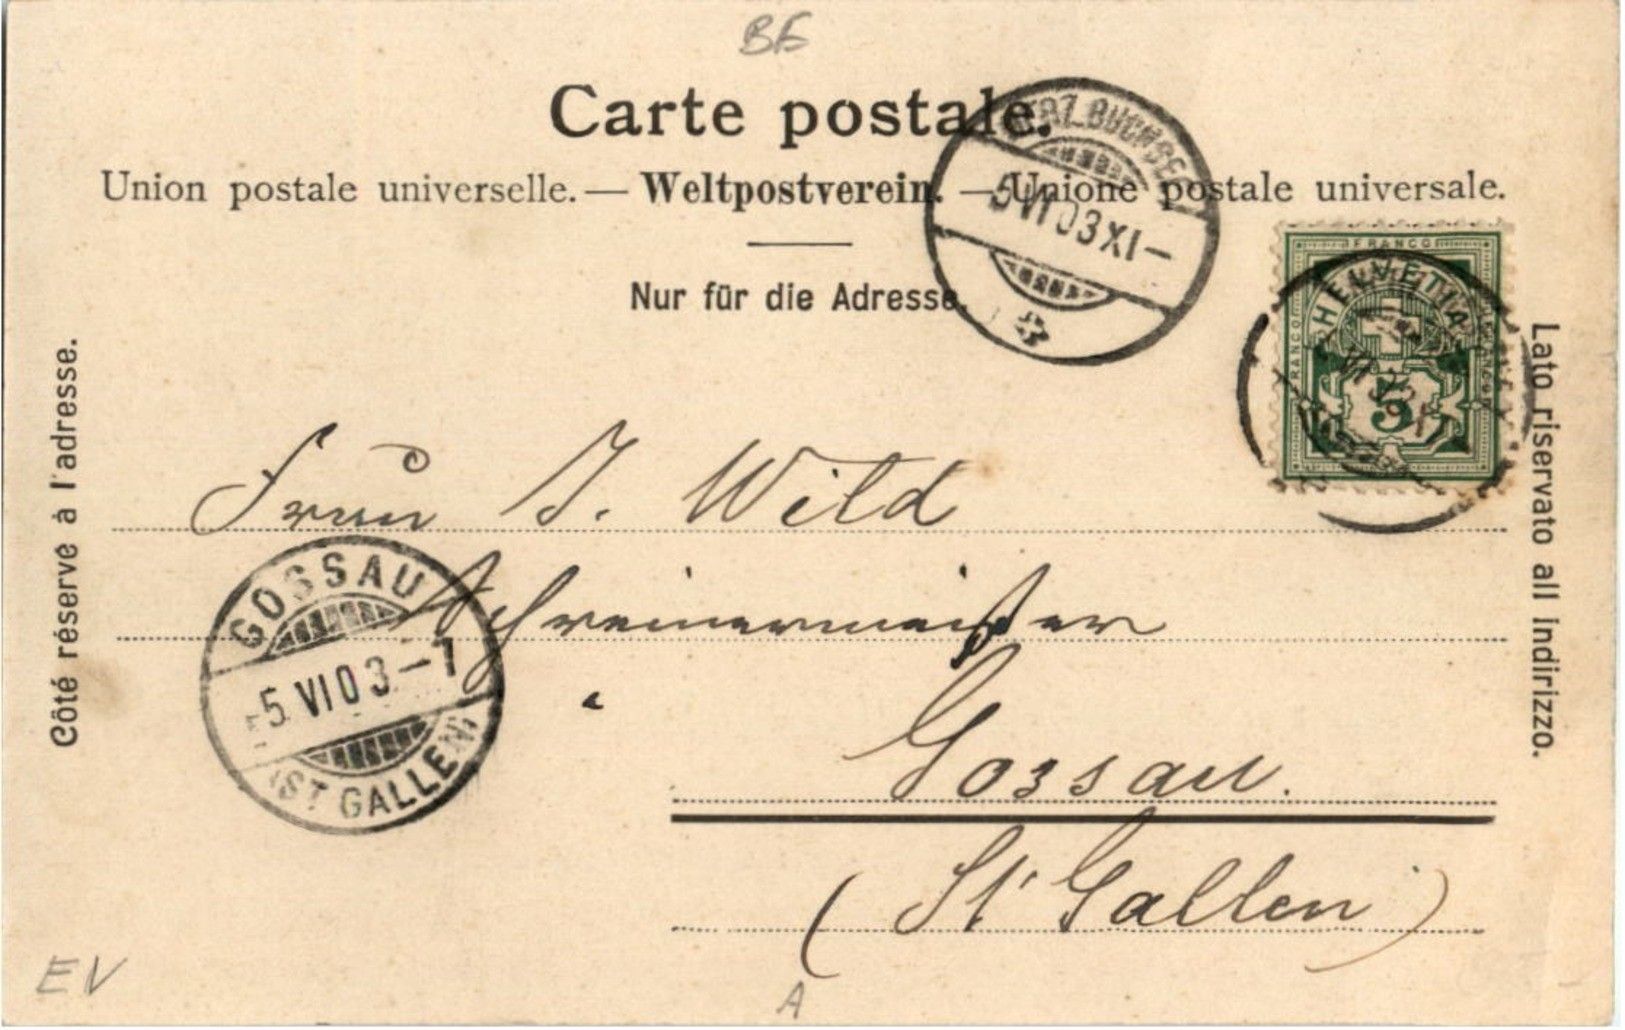 BE
Carte postale.
Union postale universelle. — Weltpostverein. — Unione postale universale.
Nur für die Adresse.
HERZ.BUCHSEE
5 VI 03 XI –
FRANCO
HELVETIA
FRANCO
5
Côté réservé à l'adresse.
Lato riservato all indirizzo.
Frau J. Wild
Schreinermeister
Gossau.
(St. Gallen)
GOSSAU
5 VI 03 – 7
(ST GALLEN)
EV
A